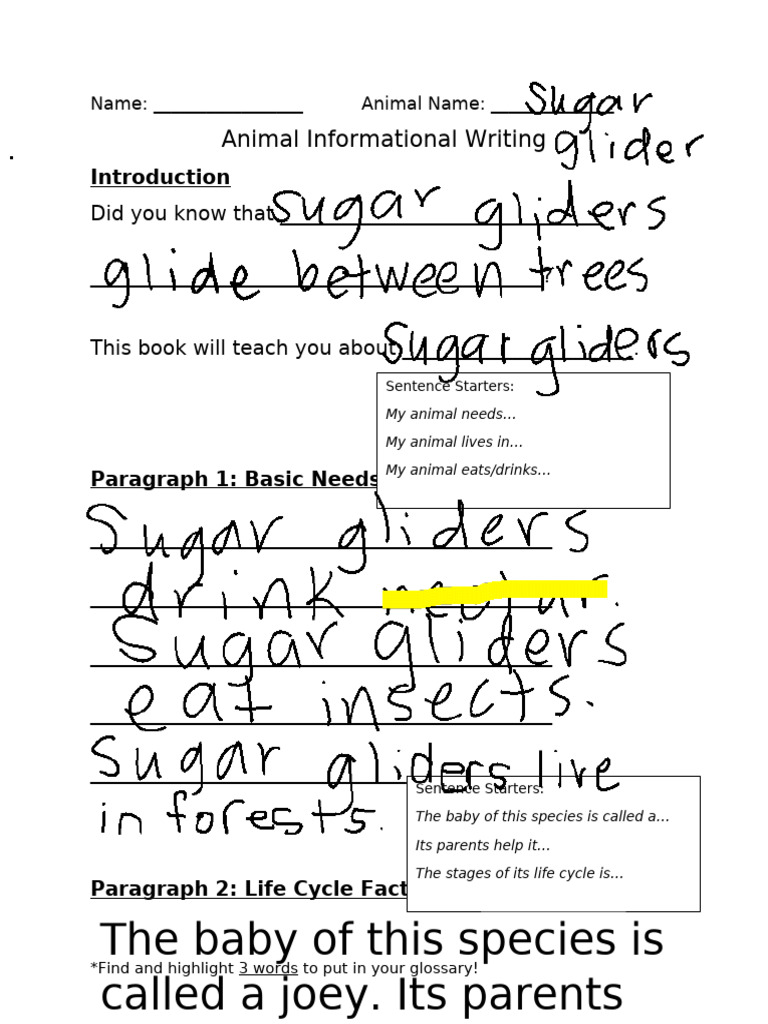 Name: _________________ Animal Name: ______________ Sugar
Animal Informational Writing glider
Introduction
Did you know that sugar gliders
glide between trees
This book will teach you about Sugar gliders.
Sentence Starters:
My animal needs…
My animal lives in…
My animal eats/drinks…
Paragraph 1: Basic Needs
Sugar gliders
drink nectar.
Sugar gliders
eat insects.
Sugar gliders live
in forests.
Sentence Starters:
The baby of this species is called a…
Its parents help it…
The stages of its life cycle is…
Paragraph 2: Life Cycle Fact
The baby of this species is
*Find and highlight 3 words to put in your glossary!
called a joey. Its parents